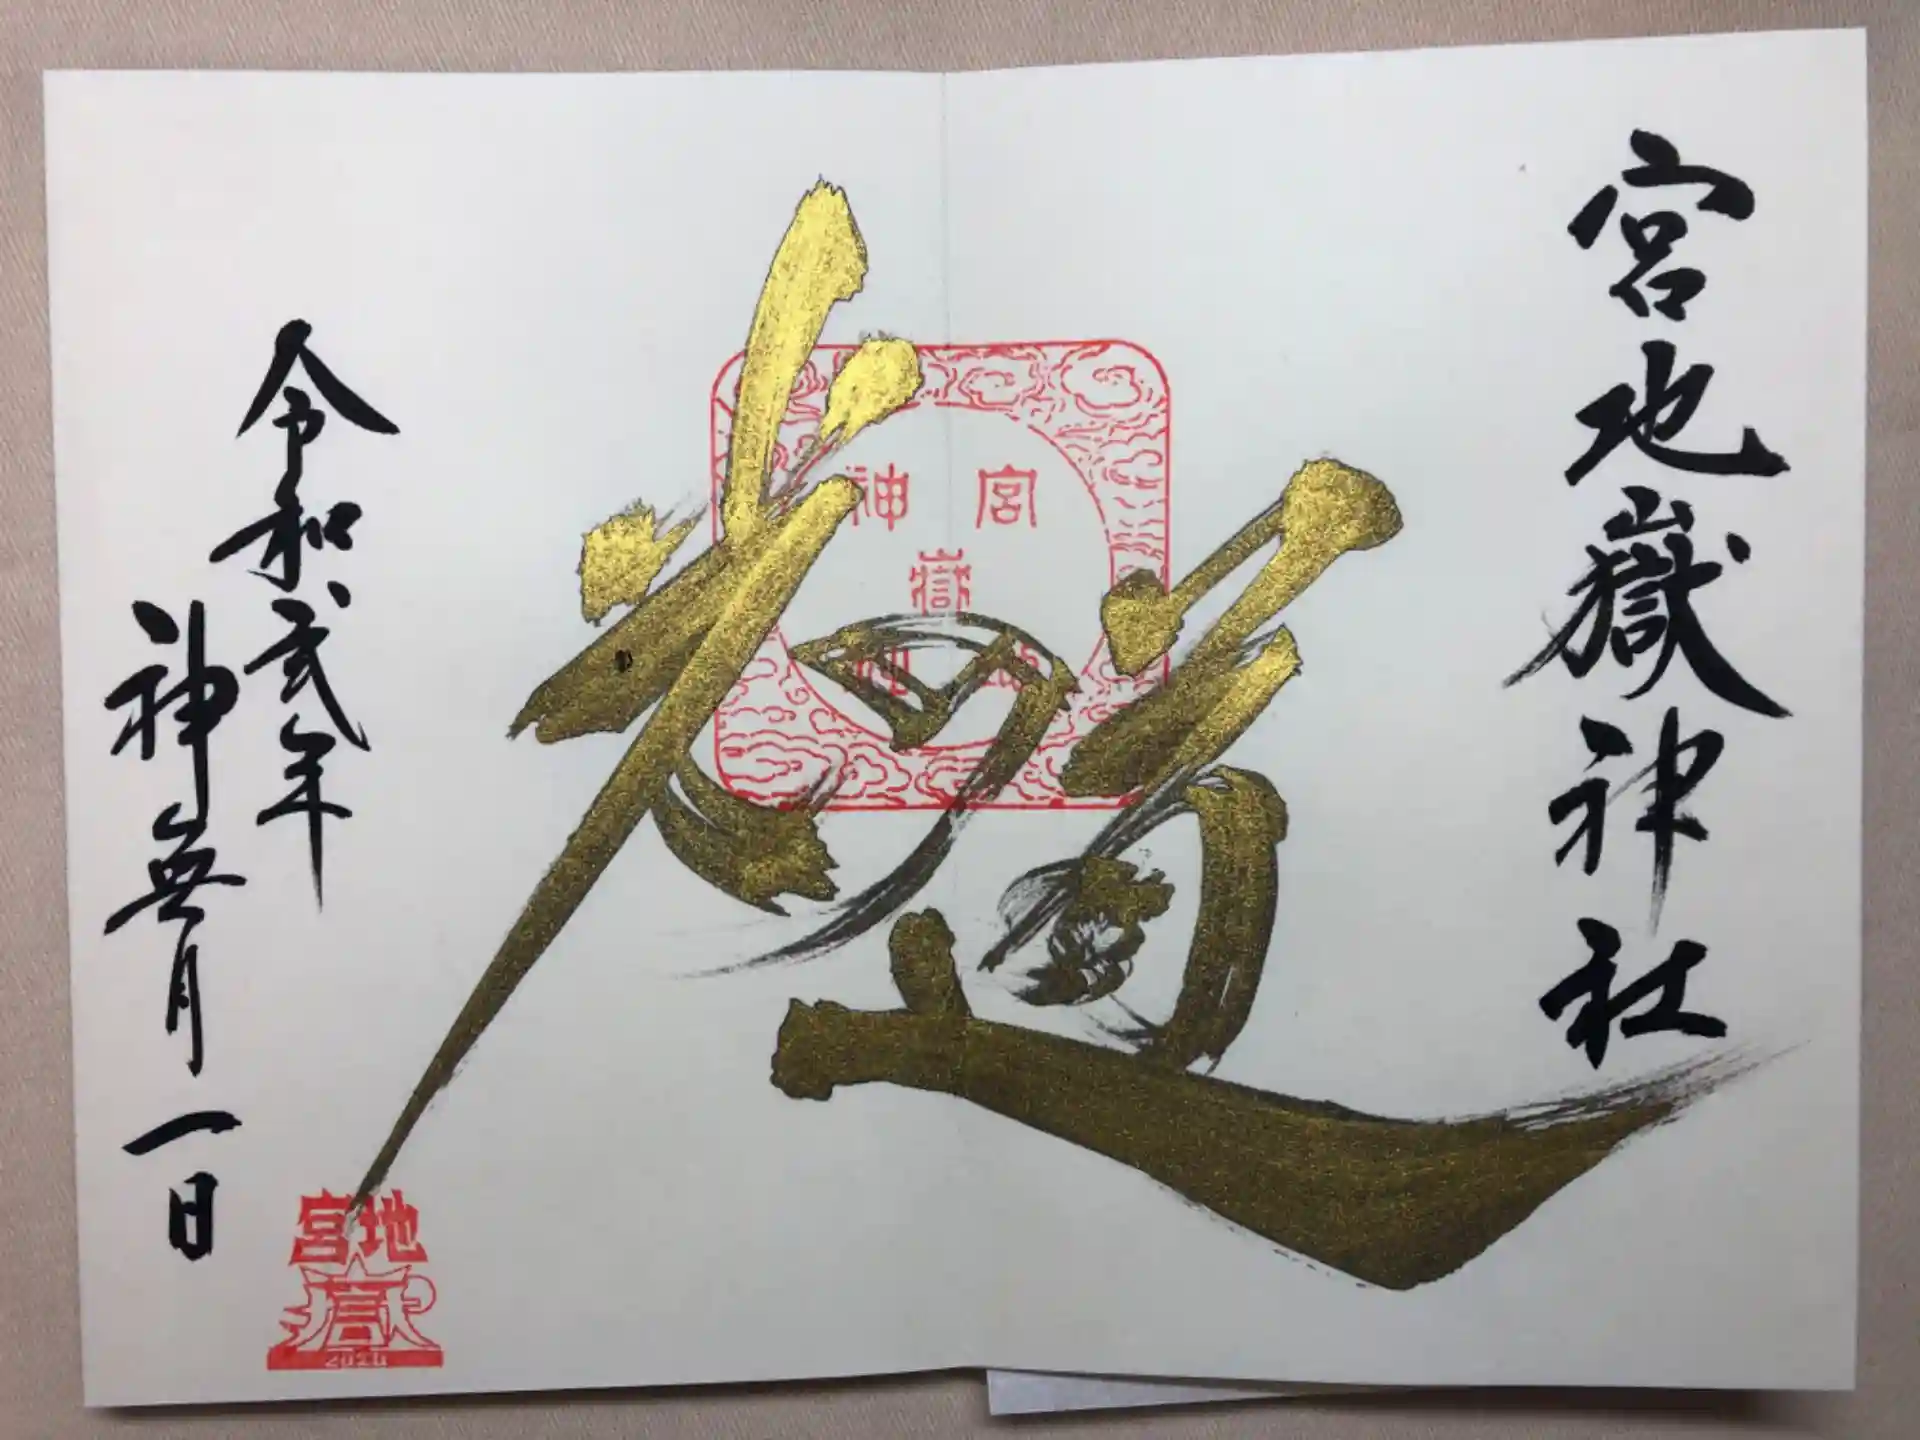 宮地嶽神社
光の道
宮地嶽神社
令和弐年
神無月一日
宮地
嶽
2020